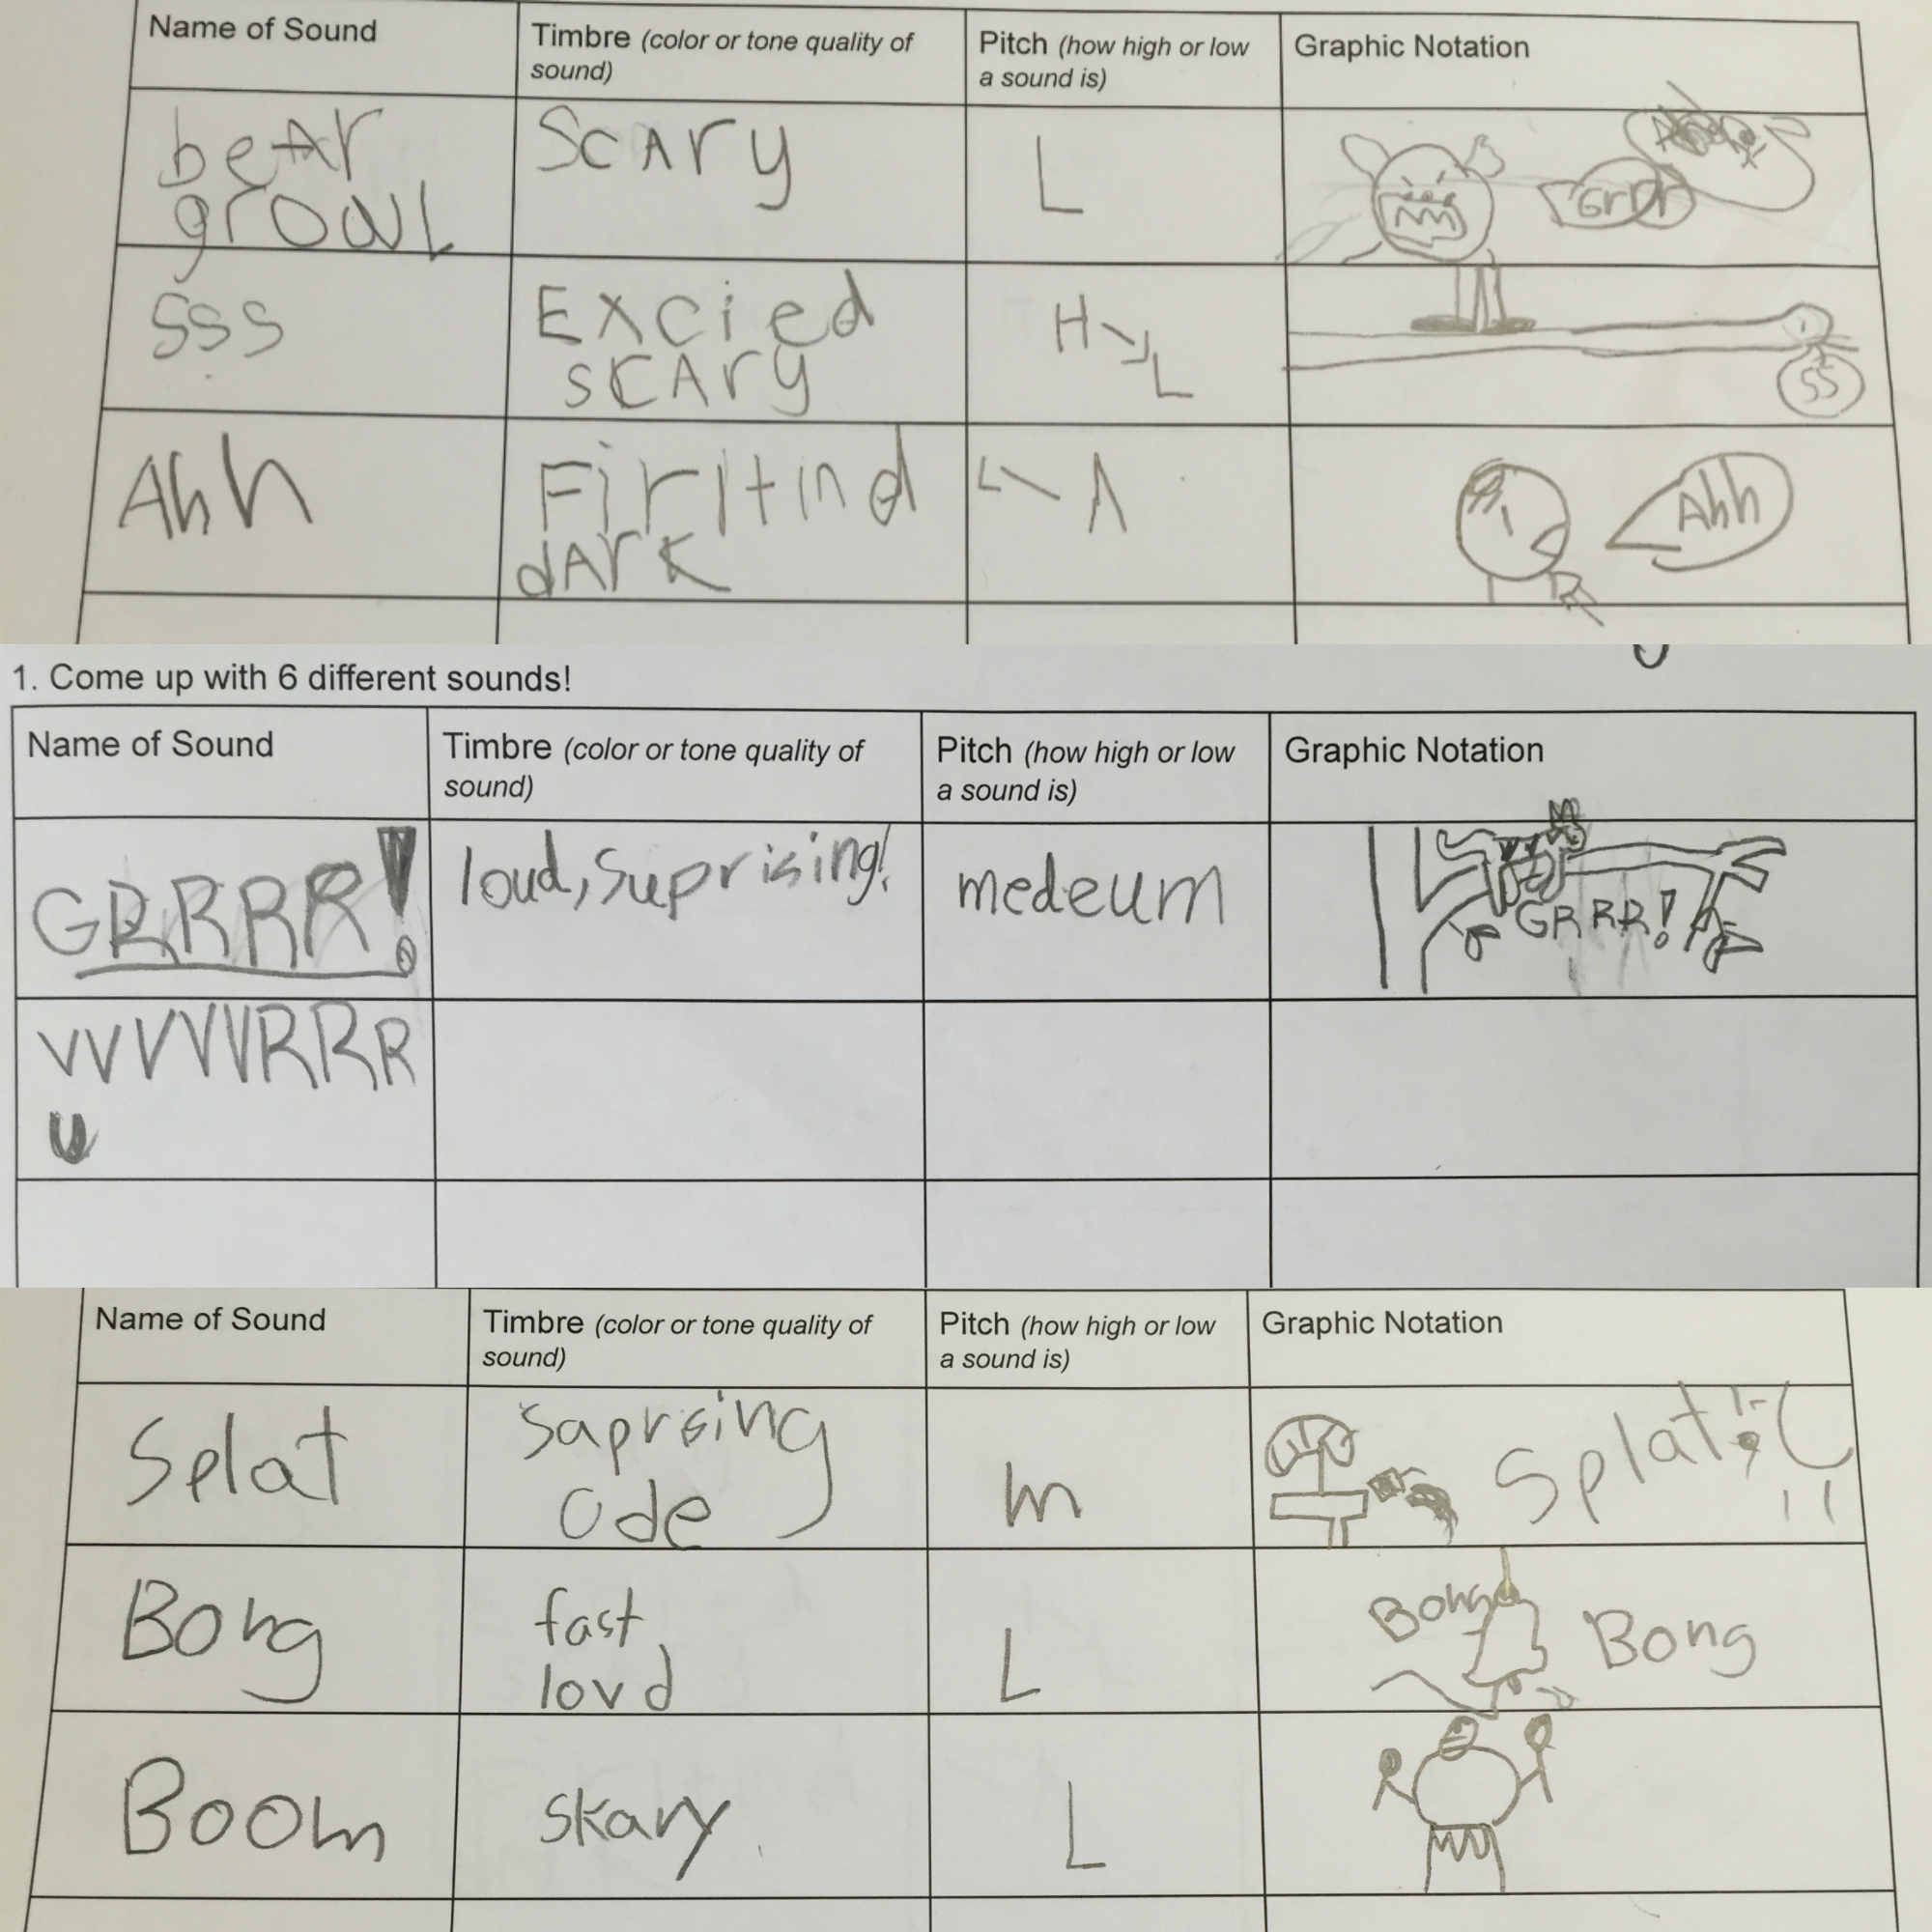 Name of Sound
Timbre (color or tone quality of
sound)
Pitch (how high or low
a sound is)
Graphic Notation
beAr
growL
ScAry
L
Grrr
sss
Excied
scAry
H
L
SS
Ahh
Firltind
dArk
L
Ahh
1. Come up with 6 different sounds!
Name of Sound
Timbre (color or tone quality of
sound)
Pitch (how high or low
a sound is)
Graphic Notation
GRRRR!
loud, Suprising!
medeum
GRRR!
VVVVVVRRR
Name of Sound
Timbre (color or tone quality of
sound)
Pitch (how high or low
a sound is)
Graphic Notation
Splat
Saprsing
Ode
m
Splat!
Bong
fast
lovd
L
Bong
Bong
Boom
skary
L